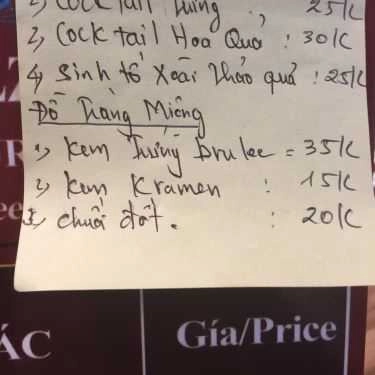 Cocktail : 25k
3, Cocktail Hoa Quả : 30k
4, Sinh tố xoài thảo quả : 25k
Đồ Tráng Miệng
1, Kem Trứng brulee = 35k
2, Kem Kramen : 15k
3, chuối đốt. : 20k
ÁC
Gía/Price